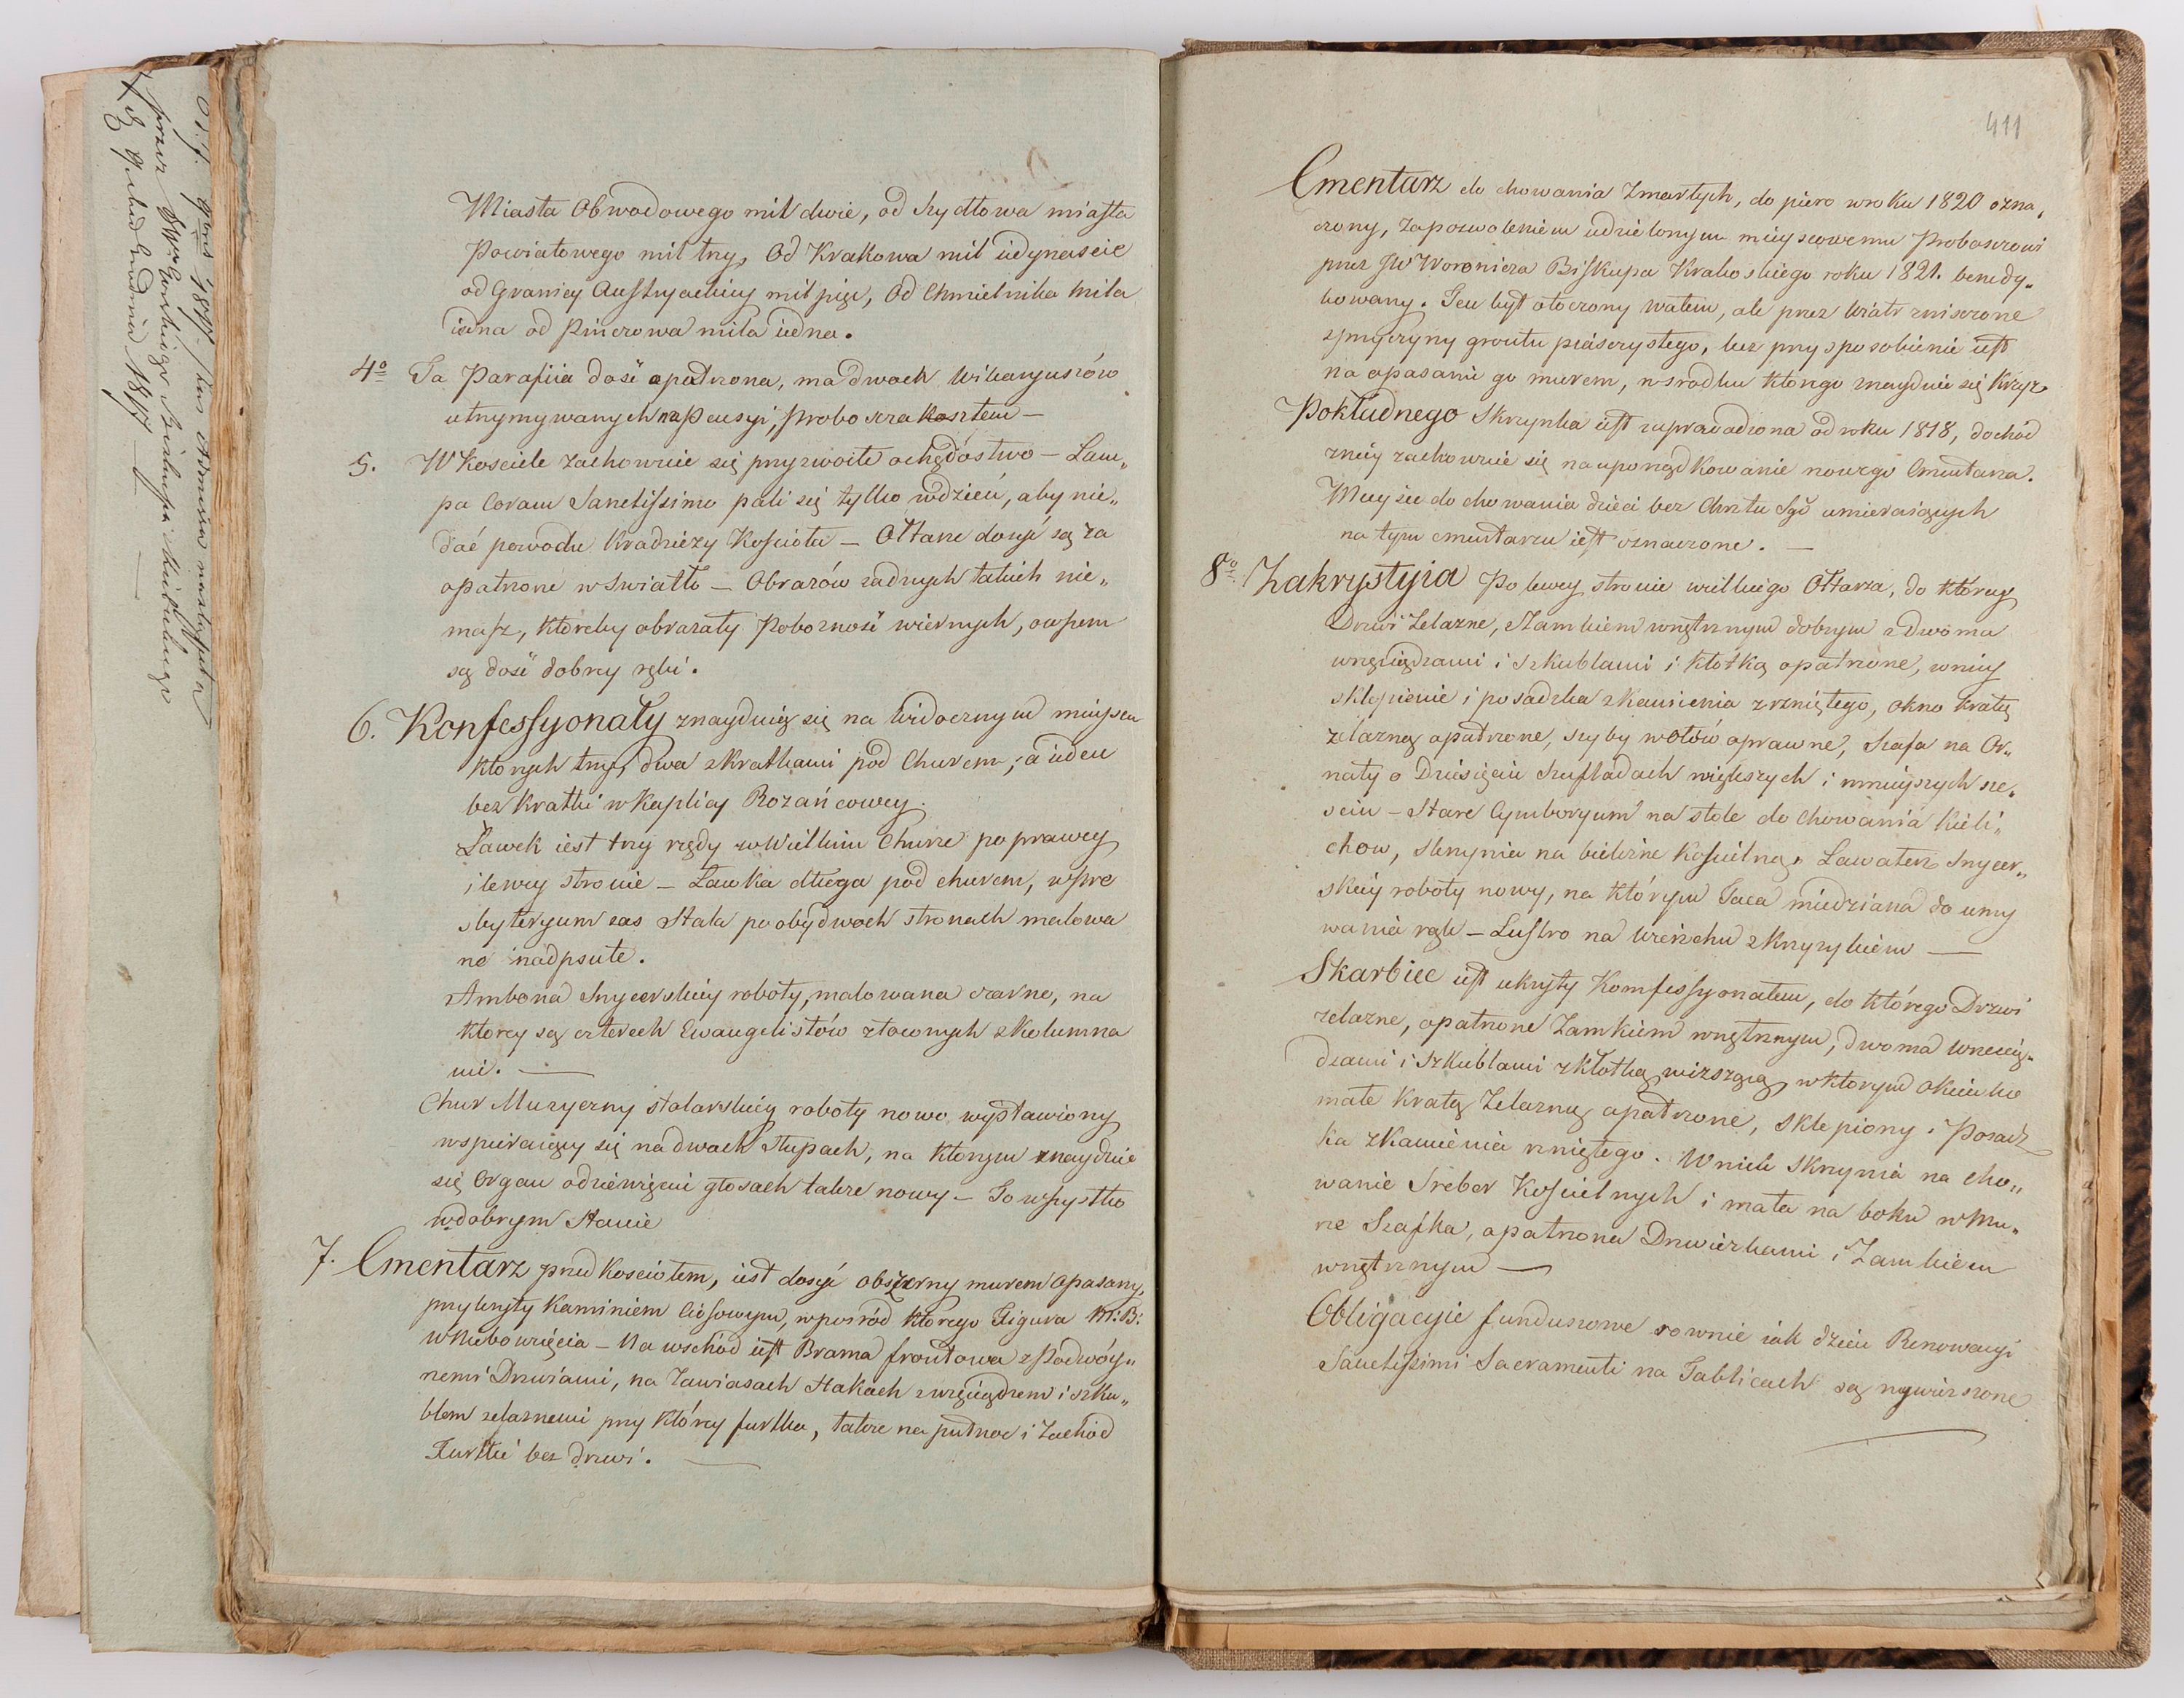 Miasta Obwodowego mil dwie, od Szydłowa miasta
Powiatowego mil trzy, Od Krakowa mil iedynaście
od Granicy Austryackiey mil pięć, Od Chmielnika mila
iedna od Pinczowa mila iedna.
4º Ta Parafiia dość opatrzona, ma dwoch Wikaryuszów
utrzymywanych na Pensyi, Proboszcza kosztem —
5. W Kościele zachowuie się przyzwoite ochędóstwo — Lam„
pa Coram Sanctissimo pali się tylko wdzień, aby nie„
dać powodu Kradzieży Kościoła — Ołtarze dosyć są za
opatrzone w światło — Obrazów żadnych takich nie„
masz, któreby obrażały Pobożność wiernych, owszem
są dość dobrey ręki.
6. Konfessyonały znayduią się na widocznym mieyscu
których trzy, dwa z kratkami pod Churem, a ieden
bez kratki w Kaplicy Rożańcowey.
Ławek iest trzy rzędy w Wielkim Churze po prawey
i lewey stronie — Ławka długa pod churem, w pre
sbyteryum zas Stala po obydwoch stronach malowa
ne nadpsute.
Ambona Snycerskiey roboty, malowana czarno, na
ktorey są czterech Ewangelistów złoconych z kolumna
mi. —
Chur Muzyczny stolarskiey roboty nowo wystawiony
wspieraiący się na dwoch słupach, na którym znayduie
się Organ o dziewięciu głosach także nowy — To wszystko
w dobrym stanie
7. Cmentarz przed kosciołem, iest dosyć obszerny murem opasany,
przykryty Kamieniem Ciosowym, w pośród którego Figura M: B:
W Niebowzięcia — Na wschód iest Brama frontowa z Podwóy„
nemi Drzwiami, na Zawiasach Hakach z wrzeciądzem i szku„
blem żelaznemi przy którey furtka, także na pułnoc i Zachód
Furtki bez drzwi. —
411
Cmentarz do chowania Zmarłych, do piero w roku 1820 ozna„
czony, Za pozwoleniem udzielonym mieyscowemu Proboszczowi
przez JW Woronicza Biskupa Krakoskiego roku 1821. benedy„
kowany. Ten był otoczony wałem, ale przez Wiatr zniszczone
z przyczyny gruntu piasczystego, lecz przysposobienie iest
na opasanie go murem, w srodku którego znayduie się Krzyż
Pokładnego Skrzynka iest zaprowadzona od roku 1818, dochód
z niey zachowuie się na uporządkowanie nowego Cmentarza.
Mieysce do chowania dzieci bez Chrztu Sgo umieraiących
na tym cmentarzu iest oznaczone. —
8º Zakrystyia Po lewey stronie wielkiego Ołtarza, do którey
Drzwi Zelazne, Zamkiem wnętrznym dobrym z Dwoma
wrzeciądzami i szkublami i kłótką opatrzone, w niey
sklepienie i posadzka z kamienia zrzniętego, okno kratą
żelazną opatrzone, szyby w ołów oprawne, Szafa na Or„
naty o Dziesięciu Szufladach większych i mnieyszych sze„
sciu — Stare Cymboryum na stole do chowania Kieli„
chow, Skrzynia na bieliznę Kościelną, Lawaterz Snycer„
skiey roboty nowy, na którym Taca miedziana do umy
wania rąk — Lustro na wierzchu z Krzyżykiem —
Skarbiec iest ukryty Komfessyonałem, do którego Drzwi
zelazne, opatrzone Zamkiem wnętrznym, dwoma wrzecią„
dzami i Szkublami z kłótką wiszącą, w ktorym okienko
małe Kratą Zelazną opatrzone, Sklepiony i Posadz
ka z Kamienia rzniętego. W nim Skrzynia na cho„
wanie Sreber Kościelnych i mała na boku w Mu„
rze Szafka, opatrzona Drzwiczkami i Zamkiem
wnętrznym —
Obligacyie funduszowe rownie iak dzień Renowacyi
Sanctissimi Sacramenti na Tablicach są wywieszone